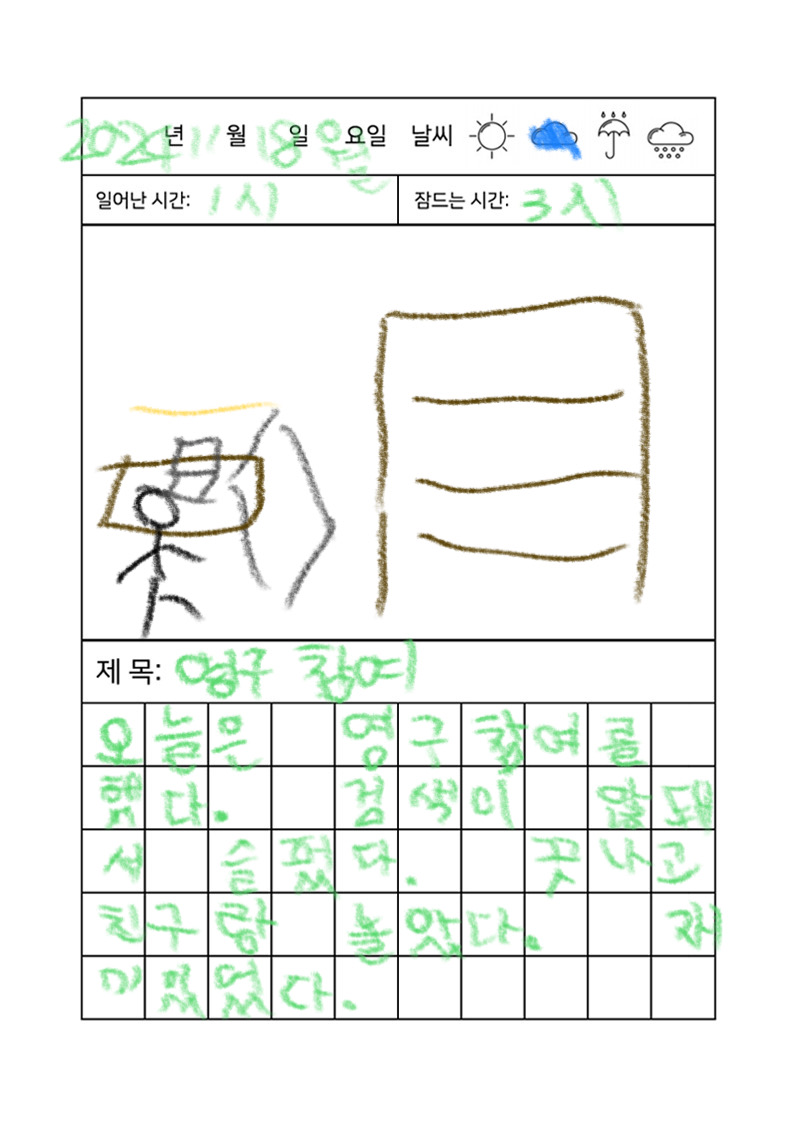 2024년 11월 18일 월요일 날씨
일어난 시간: 1시 잠드는 시간: 3시
제 목: 영구 참여
오늘은 영구 참여를
했다. 검색이 않돼
서 슬펐다. 끗나고
친구랑 놀았다. 재
미밌었다.